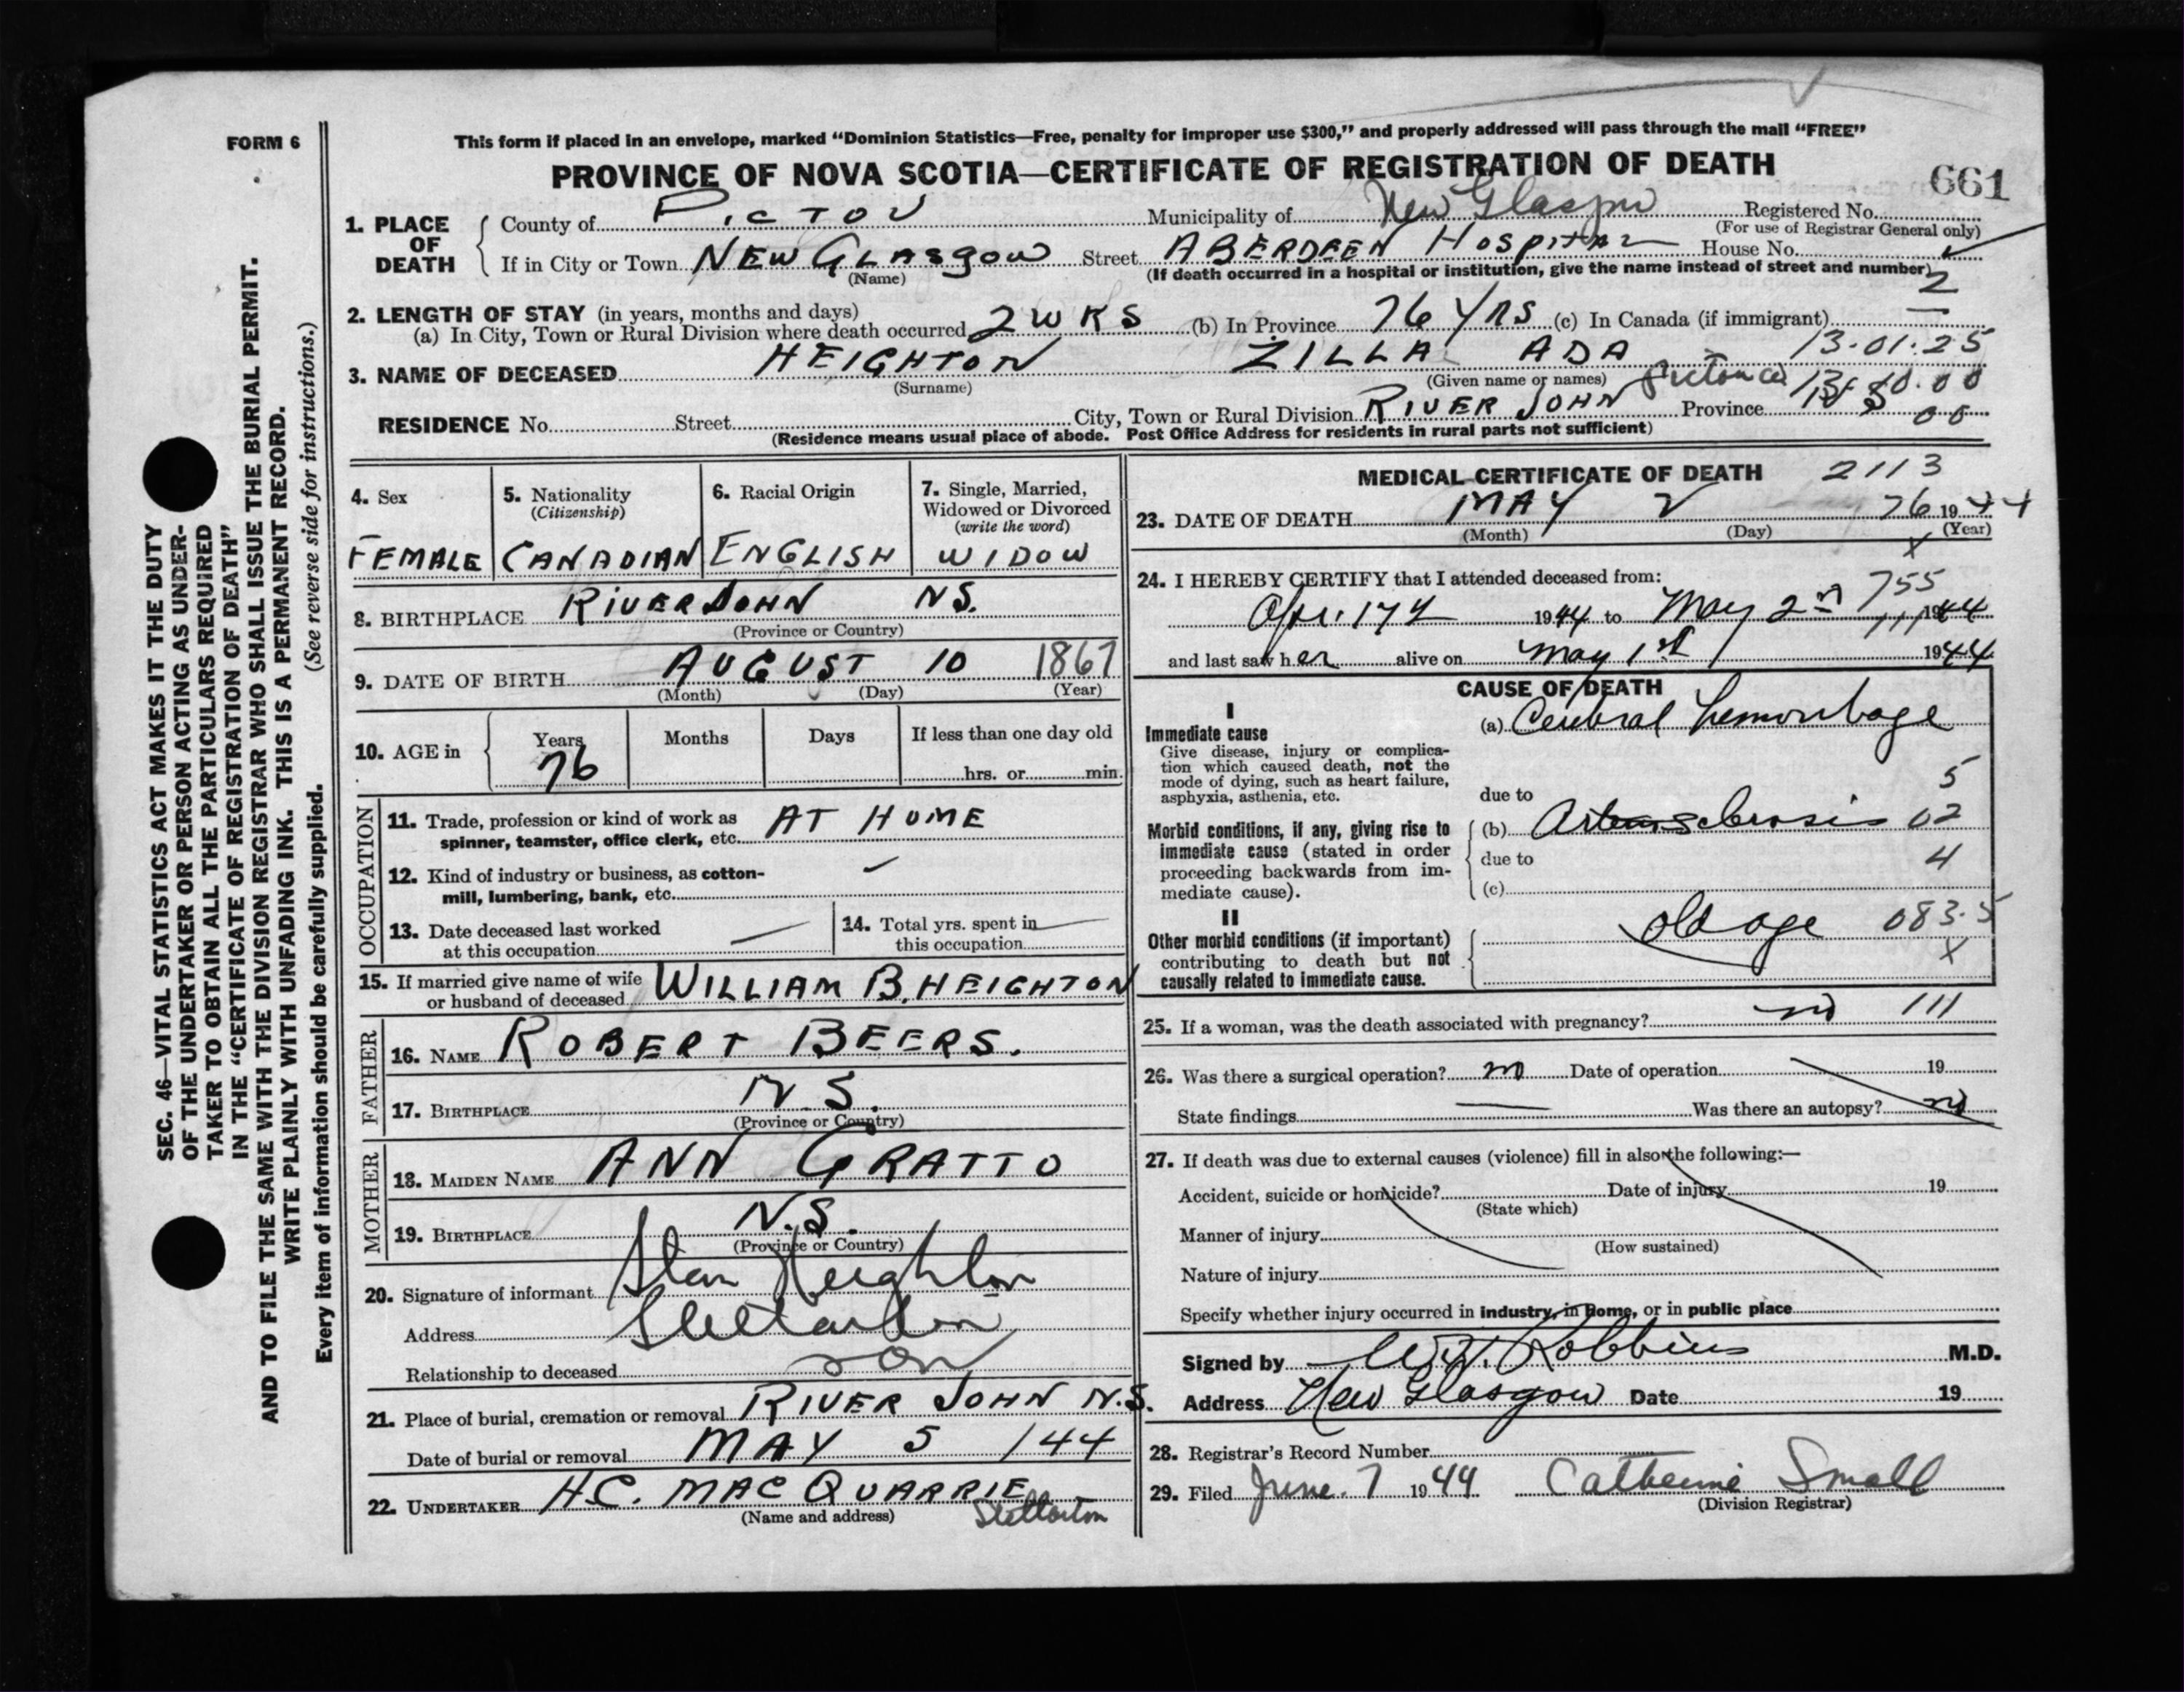 FORM 6
This form if placed in an envelope, marked “Dominion Statistics—Free, penalty for improper use $300,” and properly addressed will pass through the mail “FREE”
PROVINCE OF NOVA SCOTIA—CERTIFICATE OF REGISTRATION OF DEATH
661
1. PLACE OF DEATH
County of PICTOU Municipality of New Glasgow Registered No.
(For use of Registrar General only)
If in City or Town NEW GLASGOW Street ABERDEEN HOSPITAL House No.
(Name) (If death occurred in a hospital or institution, give the name instead of street and number)
2
2. LENGTH OF STAY (in years, months and days)
(a) In City, Town or Rural Division where death occurred 2 WKS (b) In Province 76 YRS (c) In Canada (if immigrant)
13.01.25
3. NAME OF DECEASED HEIGHTON ZILLA ADA
(Surname) (Given name or names) Pictou Co
RESIDENCE No. Street City, Town or Rural Division RIVER JOHN Province
00
(Residence means usual place of abode. Post Office Address for residents in rural parts not sufficient)
4. Sex FEMALE
5. Nationality (Citizenship) CANADIAN
6. Racial Origin ENGLISH
7. Single, Married, Widowed or Divorced (write the word) WIDOW
8. BIRTHPLACE RIVER JOHN N.S.
(Province or Country)
9. DATE OF BIRTH AUGUST 10 1867
(Month) (Day) (Year)
10. AGE in Years 76 Months Days If less than one day old
hrs. or min.
OCCUPATION
11. Trade, profession or kind of work as spinner, teamster, office clerk, etc. AT HOME
12. Kind of industry or business, as cotton-mill, lumbering, bank, etc. —
13. Date deceased last worked at this occupation —
14. Total yrs. spent in this occupation —
15. If married give name of wife or husband of deceased WILLIAM B. HEIGHTON
FATHER
16. NAME ROBERT BEERS.
17. BIRTHPLACE N.S.
(Province or Country)
MOTHER
18. MAIDEN NAME ANN GRATTO
19. BIRTHPLACE N.S.
(Province or Country)
20. Signature of informant Stan Heighton
Address Stellarton
Relationship to deceased son
21. Place of burial, cremation or removal RIVER JOHN N.S.
Date of burial or removal MAY 5 /44
22. UNDERTAKER H.C. MACQUARRIE
(Name and address) Stellarton
MEDICAL CERTIFICATE OF DEATH 2113
23. DATE OF DEATH MAY 2 76 1944
(Month) (Day) (Year)
x
24. I HEREBY CERTIFY that I attended deceased from: 755
Apr. 17 1944 to May 2nd 1944
111
and last saw her alive on May 1st 1944
CAUSE OF DEATH
I
Immediate cause
Give disease, injury or complication which caused death, not the mode of dying, such as heart failure, asphyxia, asthenia, etc.
(a) Cerebral hemorrhage
due to 5
Morbid conditions, if any, giving rise to immediate cause (stated in order proceeding backwards from immediate cause).
(b) Arteriosclerosis 02
due to 4
(c)
II
Other morbid conditions (if important) contributing to death but not causally related to immediate cause.
old age 083.5
x
25. If a woman, was the death associated with pregnancy? no 111
26. Was there a surgical operation? no Date of operation 19
State findings — Was there an autopsy? no
27. If death was due to external causes (violence) fill in also the following:—
Accident, suicide or homicide? Date of injury 19
(State which)
Manner of injury
(How sustained)
Nature of injury
Specify whether injury occurred in industry, in home, or in public place
Signed by Robbins M.D.
Address New Glasgow Date 19
28. Registrar's Record Number
29. Filed June. 7 1944 Catherine Small
(Division Registrar)
SEC. 46—VITAL STATISTICS ACT MAKES IT THE DUTY
OF THE UNDERTAKER OR PERSON ACTING AS UNDER-
TAKER TO OBTAIN ALL THE PARTICULARS REQUIRED
IN THE “CERTIFICATE OF REGISTRATION OF DEATH”
AND TO FILE THE SAME WITH THE DIVISION REGISTRAR WHO SHALL ISSUE THE BURIAL PERMIT.
WRITE PLAINLY WITH UNFADING INK. THIS IS A PERMANENT RECORD.
Every item of information should be carefully supplied. (See reverse side for instructions.)